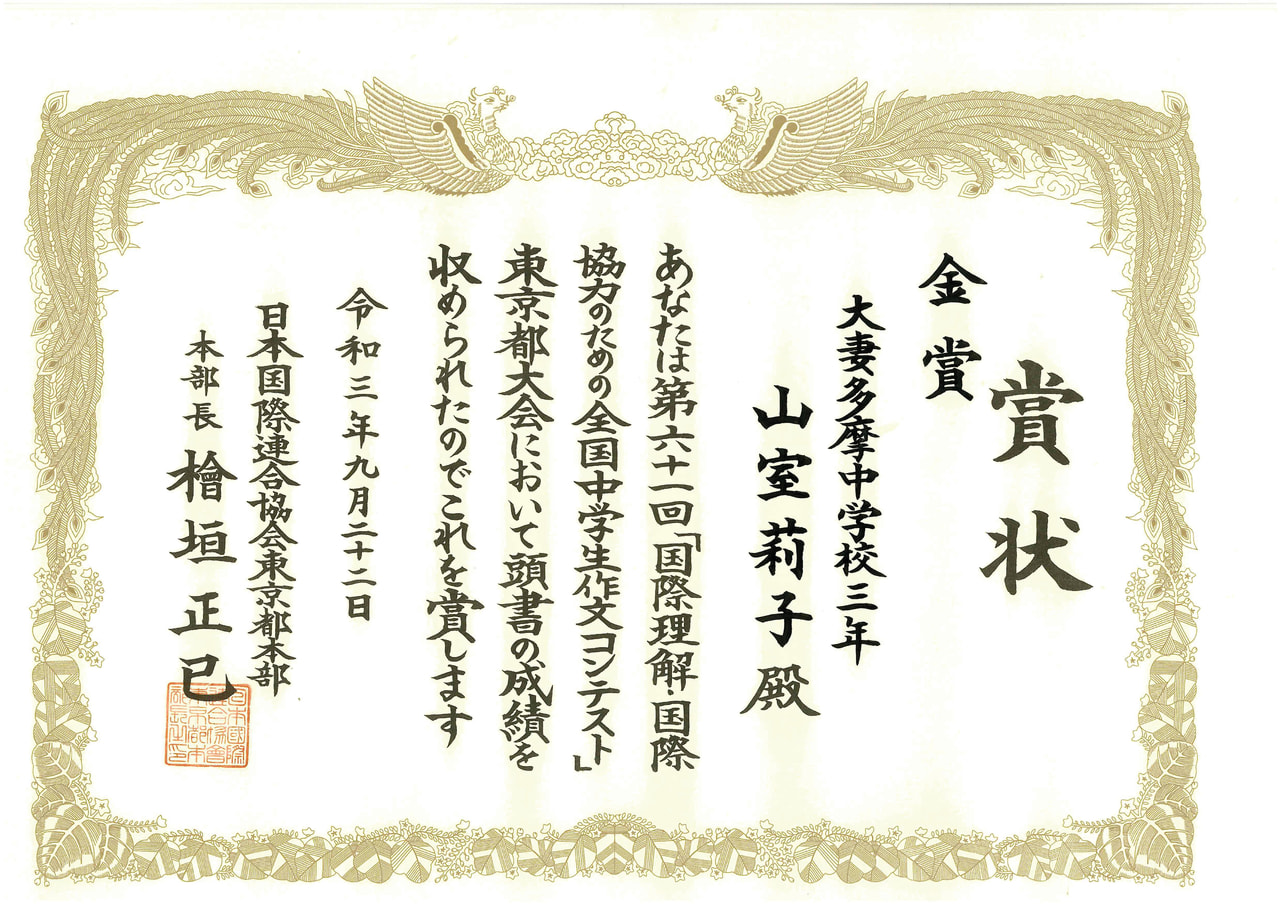 賞状
金賞
大妻多摩中学校三年
山室莉子殿
あなたは第六十一回「国際理解・国際
協力のための全国中学生作文コンテスト」
東京都大会において頭書の成績を
収められたのでこれを賞します
令和三年九月二十二日
日本国際連合協会東京都本部
本部長 檜垣正已